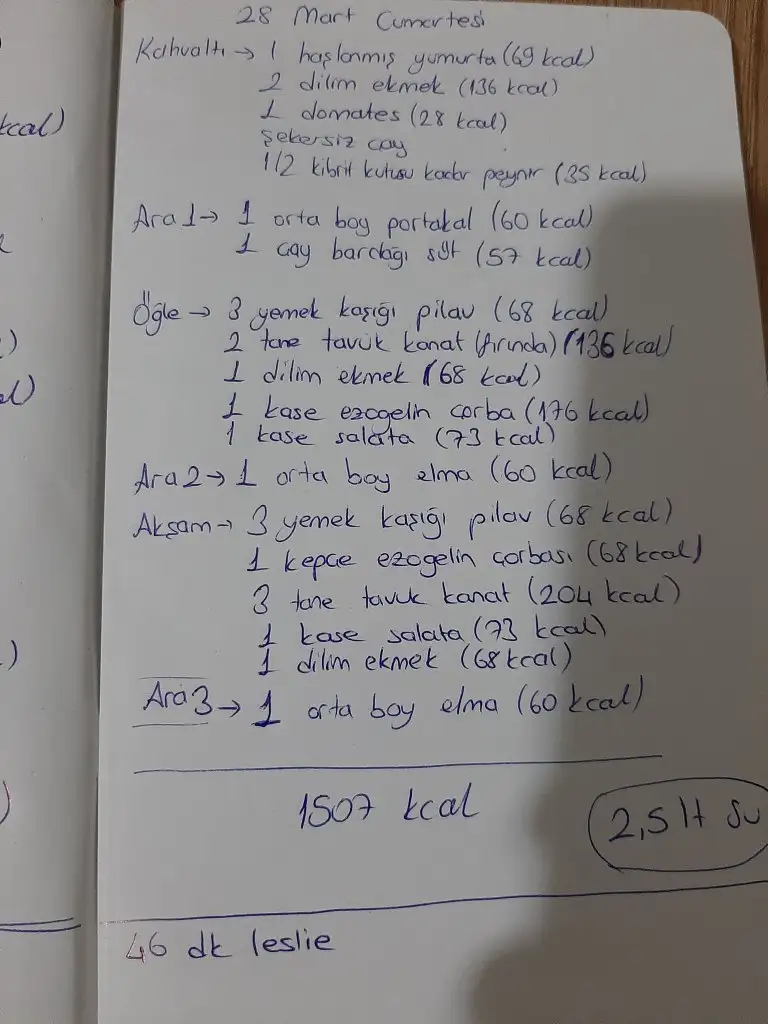 28 Mart Cumartesi
Kahvaltı → 1 haşlanmış yumurta (69 kcal)
2 dilim ekmek (136 kcal)
1 domates (28 kcal)
Şekersiz çay
1/2 kibrit kutusu kadar peynir (35 kcal)
Ara 1 → 1 orta boy portakal (60 kcal)
1 çay bardağı süt (57 kcal)
Öğle → 3 yemek kaşığı pilav (68 kcal)
2 tane tavuk kanat (fırında) (136 kcal)
1 dilim ekmek (68 kcal)
1 kase ezogelin çorba (176 kcal)
1 kase salata (73 kcal)
Ara 2 → 1 orta boy elma (60 kcal)
Akşam → 3 yemek kaşığı pilav (68 kcal)
1 kepçe ezogelin çorbası (68 kcal)
3 tane tavuk kanat (204 kcal)
1 kase salata (73 kcal)
1 dilim ekmek (68 kcal)
Ara 3 → 1 orta boy elma (60 kcal)
1507 kcal
2,5 lt su
46 dk leslie
kcal)